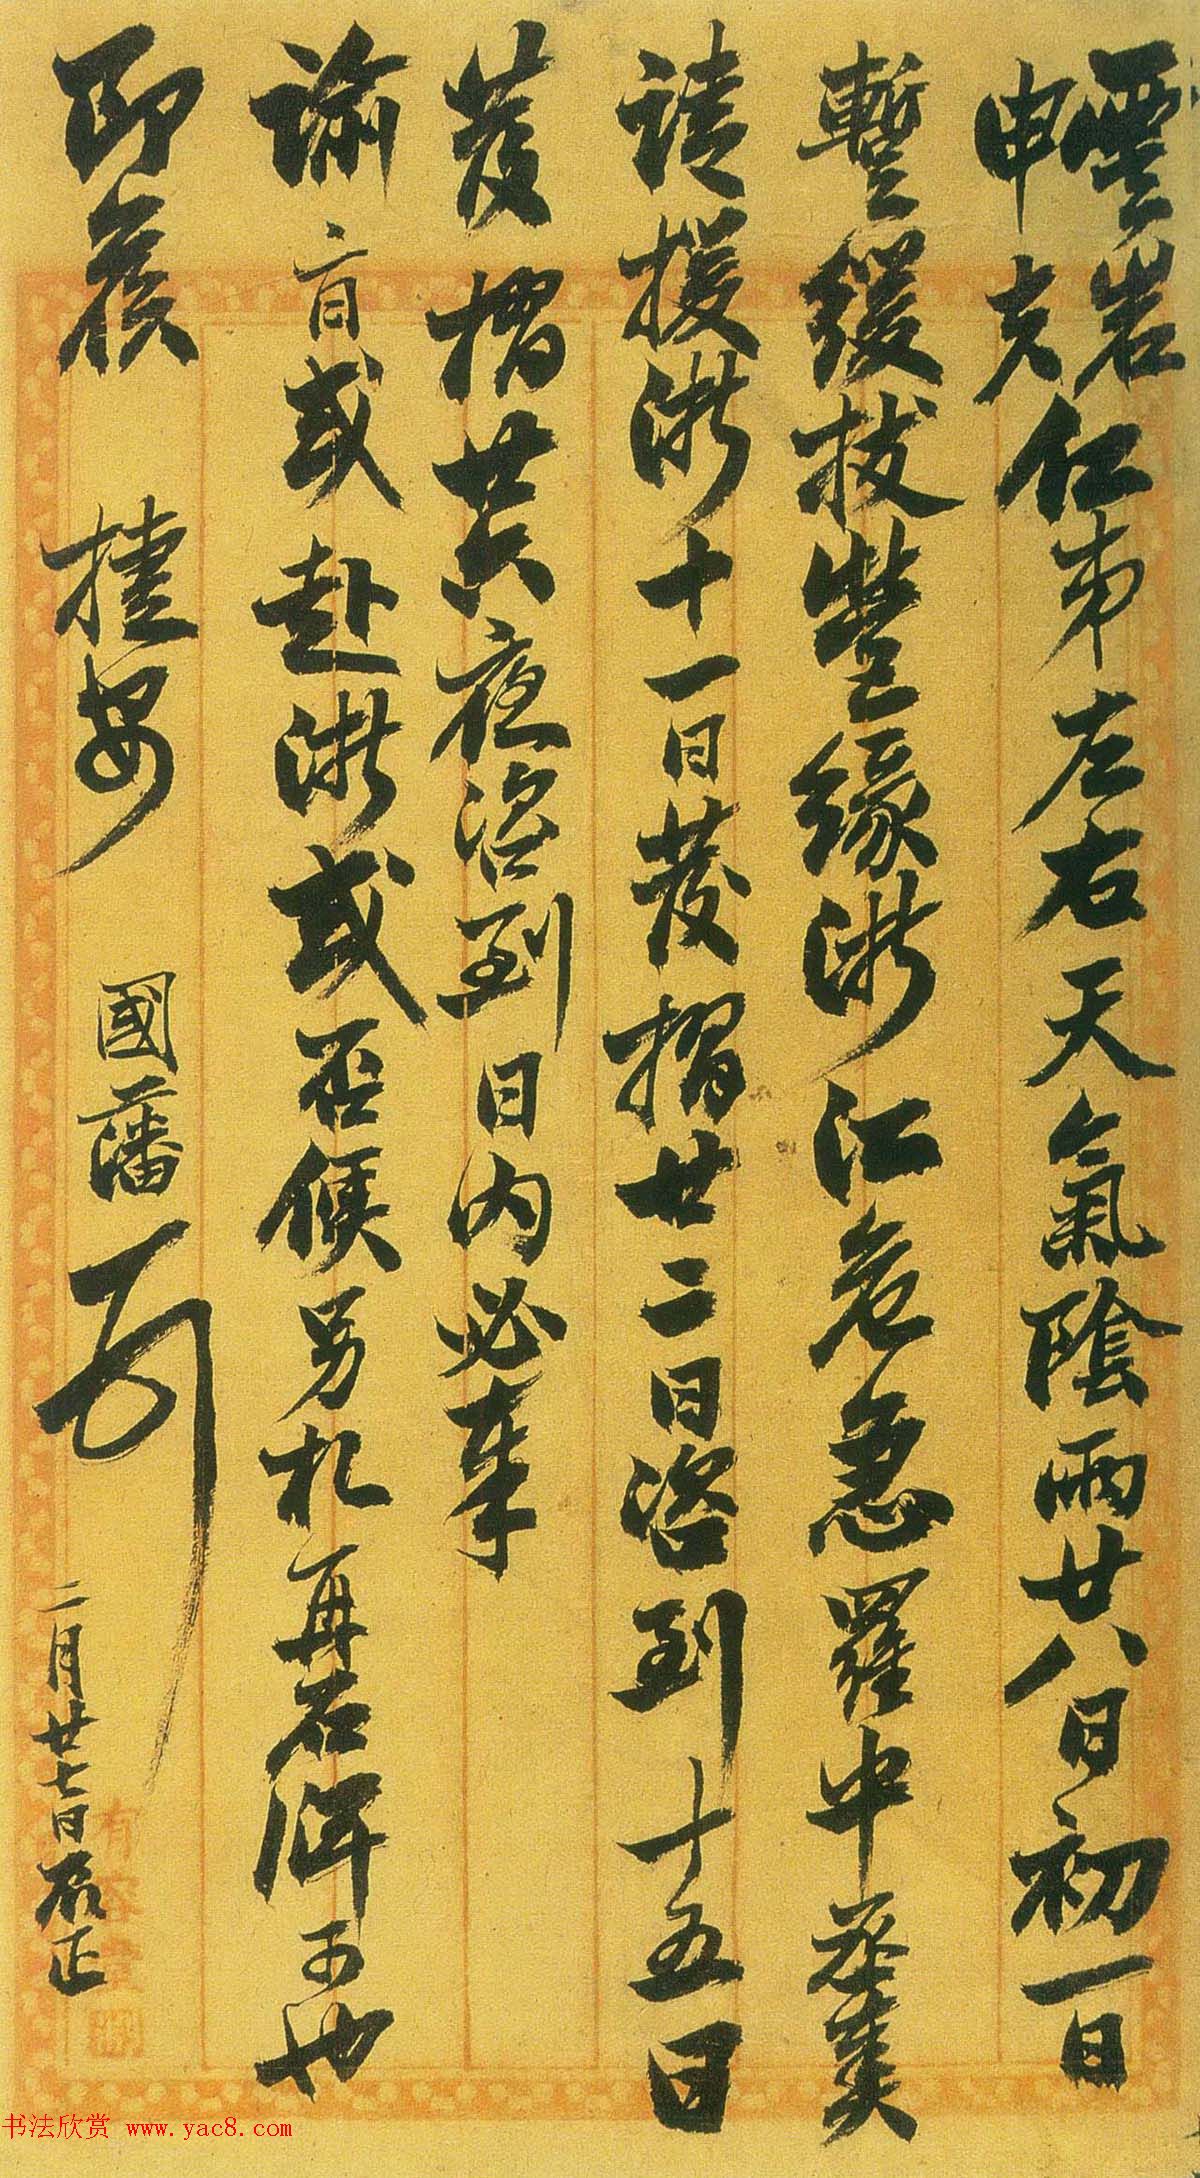 雲岩
申夫仁弟左右天氣陰雨廿八日初一日
暫緩拔營緣浙江危急羅中丞奏
請援浙十一日發摺廿二日咨到十五日
發摺共夜咨到日内必奉
諭旨或赴浙或否候另札再石牌可也
即候 捷安 國藩 二月廿七日辰正
有容堂
书法欣赏 www.yac8.com